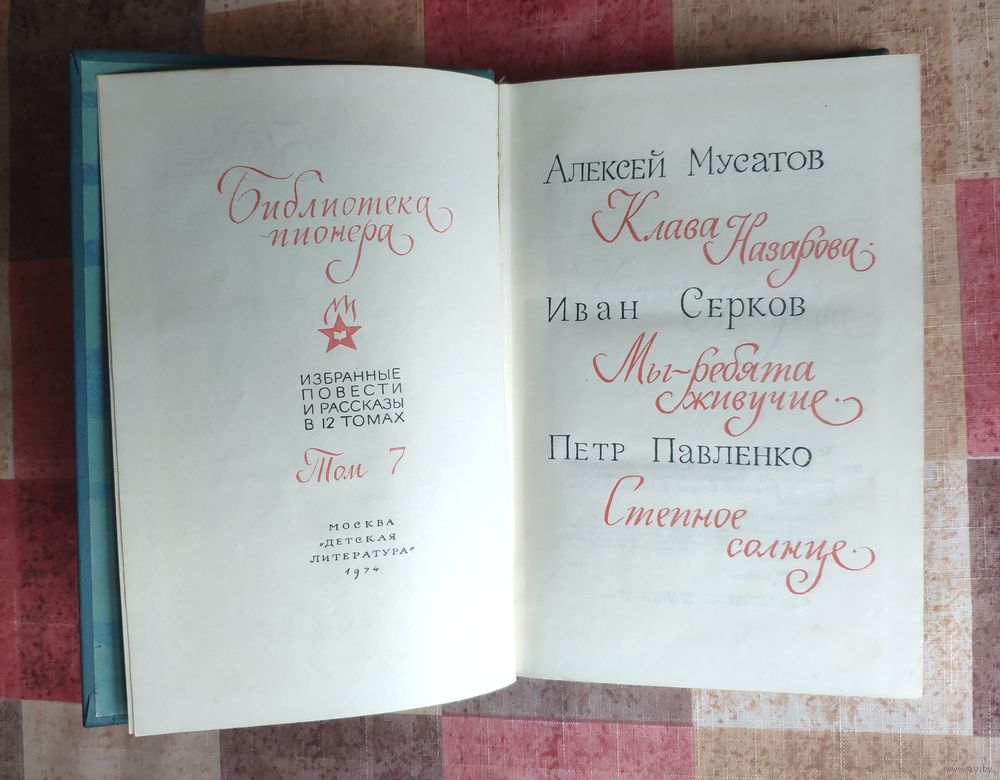 Библиотека
пионера
ИЗБРАННЫЕ
ПОВЕСТИ
И РАССКАЗЫ
В 12 ТОМАХ
Том 7
МОСКВА
"ДЕТСКАЯ
ЛИТЕРАТУРА"
1974
АЛЕКСЕЙ МУСАТОВ
Клава Назарова.
ИВАН СЕРКОВ
Мы-ребята
живучие.
ПЕТР ПАВЛЕНКО
Степное
солнце.
www.ay.by